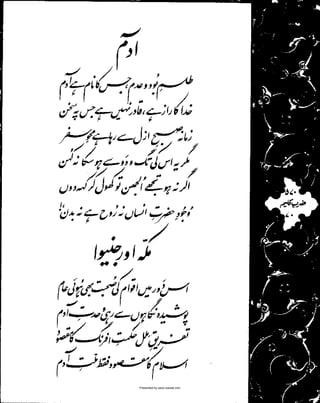 آدم
طلسمِ بود و عدم، جس کا نام ہے آدم
خدا کا راز ہے، قادر نہیں ہے جس پہ سخن
زمانہ صبحِ ازل سے رہا ہے محوِ سفر
مگر یہ اس کی تگ و دو سے ہو سکا نہ کہن
اگر نہ ہو تجھے الجھن تو کھول کر کہہ دوں
وجودِ حضرتِ انساں نہ روح ہے نہ بدن!
مکہ اور جنیوا
اس دور میں اقوام کی صحبت بھی ہوئی عام
پوشیدہ نگاہوں سے رہی وحدتِ آدم
تفریقِ ملل حکمتِ افرنگ کا مقصود
اسلام کا مقصود فقط ملتِ آدم
۵۷۰
ضربِ کلیم
۷۰
Presented by www.iqbalal.com